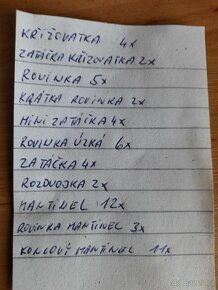 KŘIŽOVATKA 4x
ZATÁČKA KŘIŽOVATKA 2x
ROVINKA 5x
KRÁTKÁ ROVINKA 2x
MINI ZATÁČKA 4x
ROVINKA ÚZKÁ 6x
ZATÁČKA 4x
ROZDVOJKA 2x
MANTINEL 12x
ROVINKA MANTINEL 3x
KONCOVÝ MANTINEL 11x